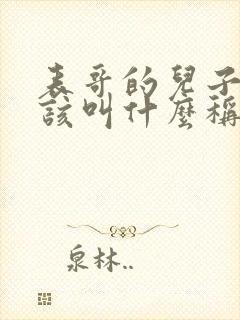 表哥的兒子
該叫什麼稱
泉林..